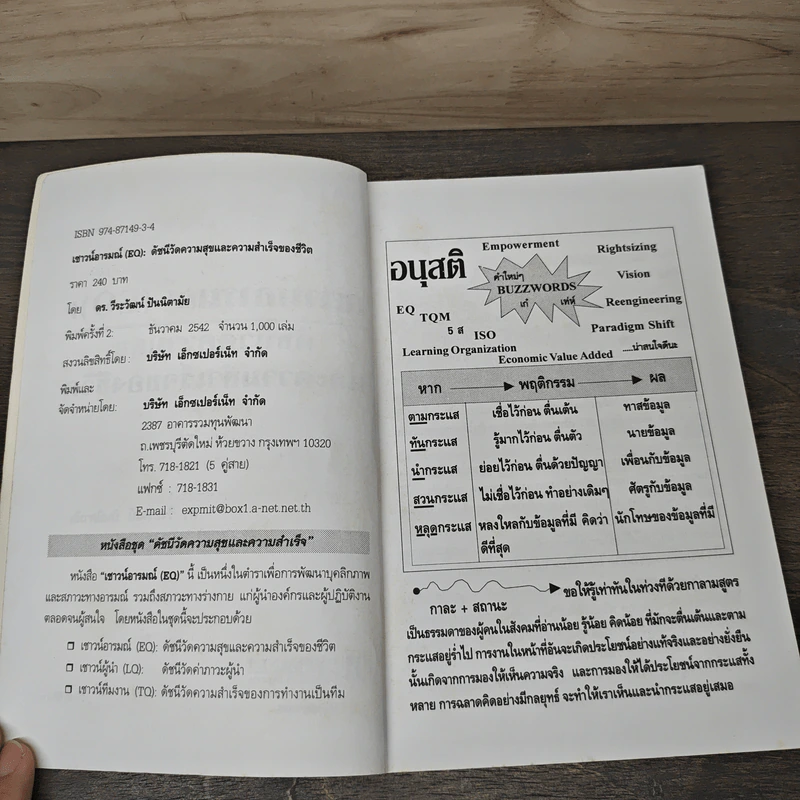 ISBN 974-87149-3-4
เชาวน์อารมณ์ (EQ): ดัชนีวัดความสุขและความสำเร็จของชีวิต
ราคา 240 บาท
โดย ดร. วีระวัฒน์ ปันนิตามัย
พิมพ์ครั้งที่ 2: ธันวาคม 2542 จำนวน 1,000 เล่ม
สงวนลิขสิทธิ์โดย: บริษัท เอ็กซเปอร์เน็ท จำกัด
พิมพ์และ
จัดจำหน่ายโดย: บริษัท เอ็กซเปอร์เน็ท จำกัด
2387 อาคารรวมทุนพัฒนา
ถ.เพชรบุรีตัดใหม่ ห้วยขวาง กรุงเทพฯ 10320
โทร. 718-1821 (5 คู่สาย)
แฟกซ์ : 718-1831
E-mail : expmit@box1.a-net.net.th
หนังสือชุด "ดัชนีวัดความสุขและความสำเร็จ"
หนังสือ "เชาวน์อารมณ์ (EQ)" นี้ เป็นหนึ่งในตำราเพื่อการพัฒนาบุคลิกภาพ
และสภาวะทางอารมณ์ รวมถึงสภาวะทางร่างกาย แก่ผู้นำองค์กรและผู้ปฏิบัติงาน
ตลอดจนผู้สนใจ โดยหนังสือในชุดนี้จะประกอบด้วย
❒ เชาวน์อารมณ์ (EQ): ดัชนีวัดความสุขและความสำเร็จของชีวิต
❒ เชาวน์ผู้นำ (LQ): ดัชนีวัดค่าภาวะผู้นำ
❒ เชาวน์ทีมงาน (TQ): ดัชนีวัดความสำเร็จของการทำงานเป็นทีม
อนุสติ
Empowerment
Rightsizing
คำใหม่ๆ
BUZZWORDS
เก๋ เท่ห์
Vision
Reengineering
EQ
TQM
5 ส
ISO
Paradigm Shift
Learning Organization
Economic Value Added
....น่าสนใจดีนะ
หาก พฤติกรรม ผล
ตามกระแส เชื่อไว้ก่อน ตื่นเต้น ทาสข้อมูล
ทันกระแส รู้มากไว้ก่อน ตื่นตัว นายข้อมูล
นำกระแส ย่อยไว้ก่อน ตื่นด้วยปัญญา เพื่อนกับข้อมูล
สวนกระแส ไม่เชื่อไว้ก่อน ทำอย่างเดิมๆ ศัตรูกับข้อมูล
หลุดกระแส หลงใหลกับข้อมูลที่มี คิดว่า นักโทษของข้อมูลที่มี
ดีที่สุด
ขอให้รู้เท่าทันในท่วงทีด้วยกาลามสูตร
กาละ + สถานะ
เป็นธรรมดาของผู้คนในสังคมที่อ่านน้อย รู้น้อย คิดน้อย ที่มักจะตื่นเต้นและตาม
กระแสอยู่ร่ำไป การงานในหน้าที่อันจะเกิดประโยชน์อย่างแท้จริงและอย่างยั่งยืน
นั้นเกิดจากการมองให้เห็นความจริง และการมองให้ได้ประโยชน์จากกระแสทั้ง
หลาย การฉลาดคิดอย่างมีกลยุทธ์ จะทำให้เราเห็นและนำกระแสอยู่เสมอ